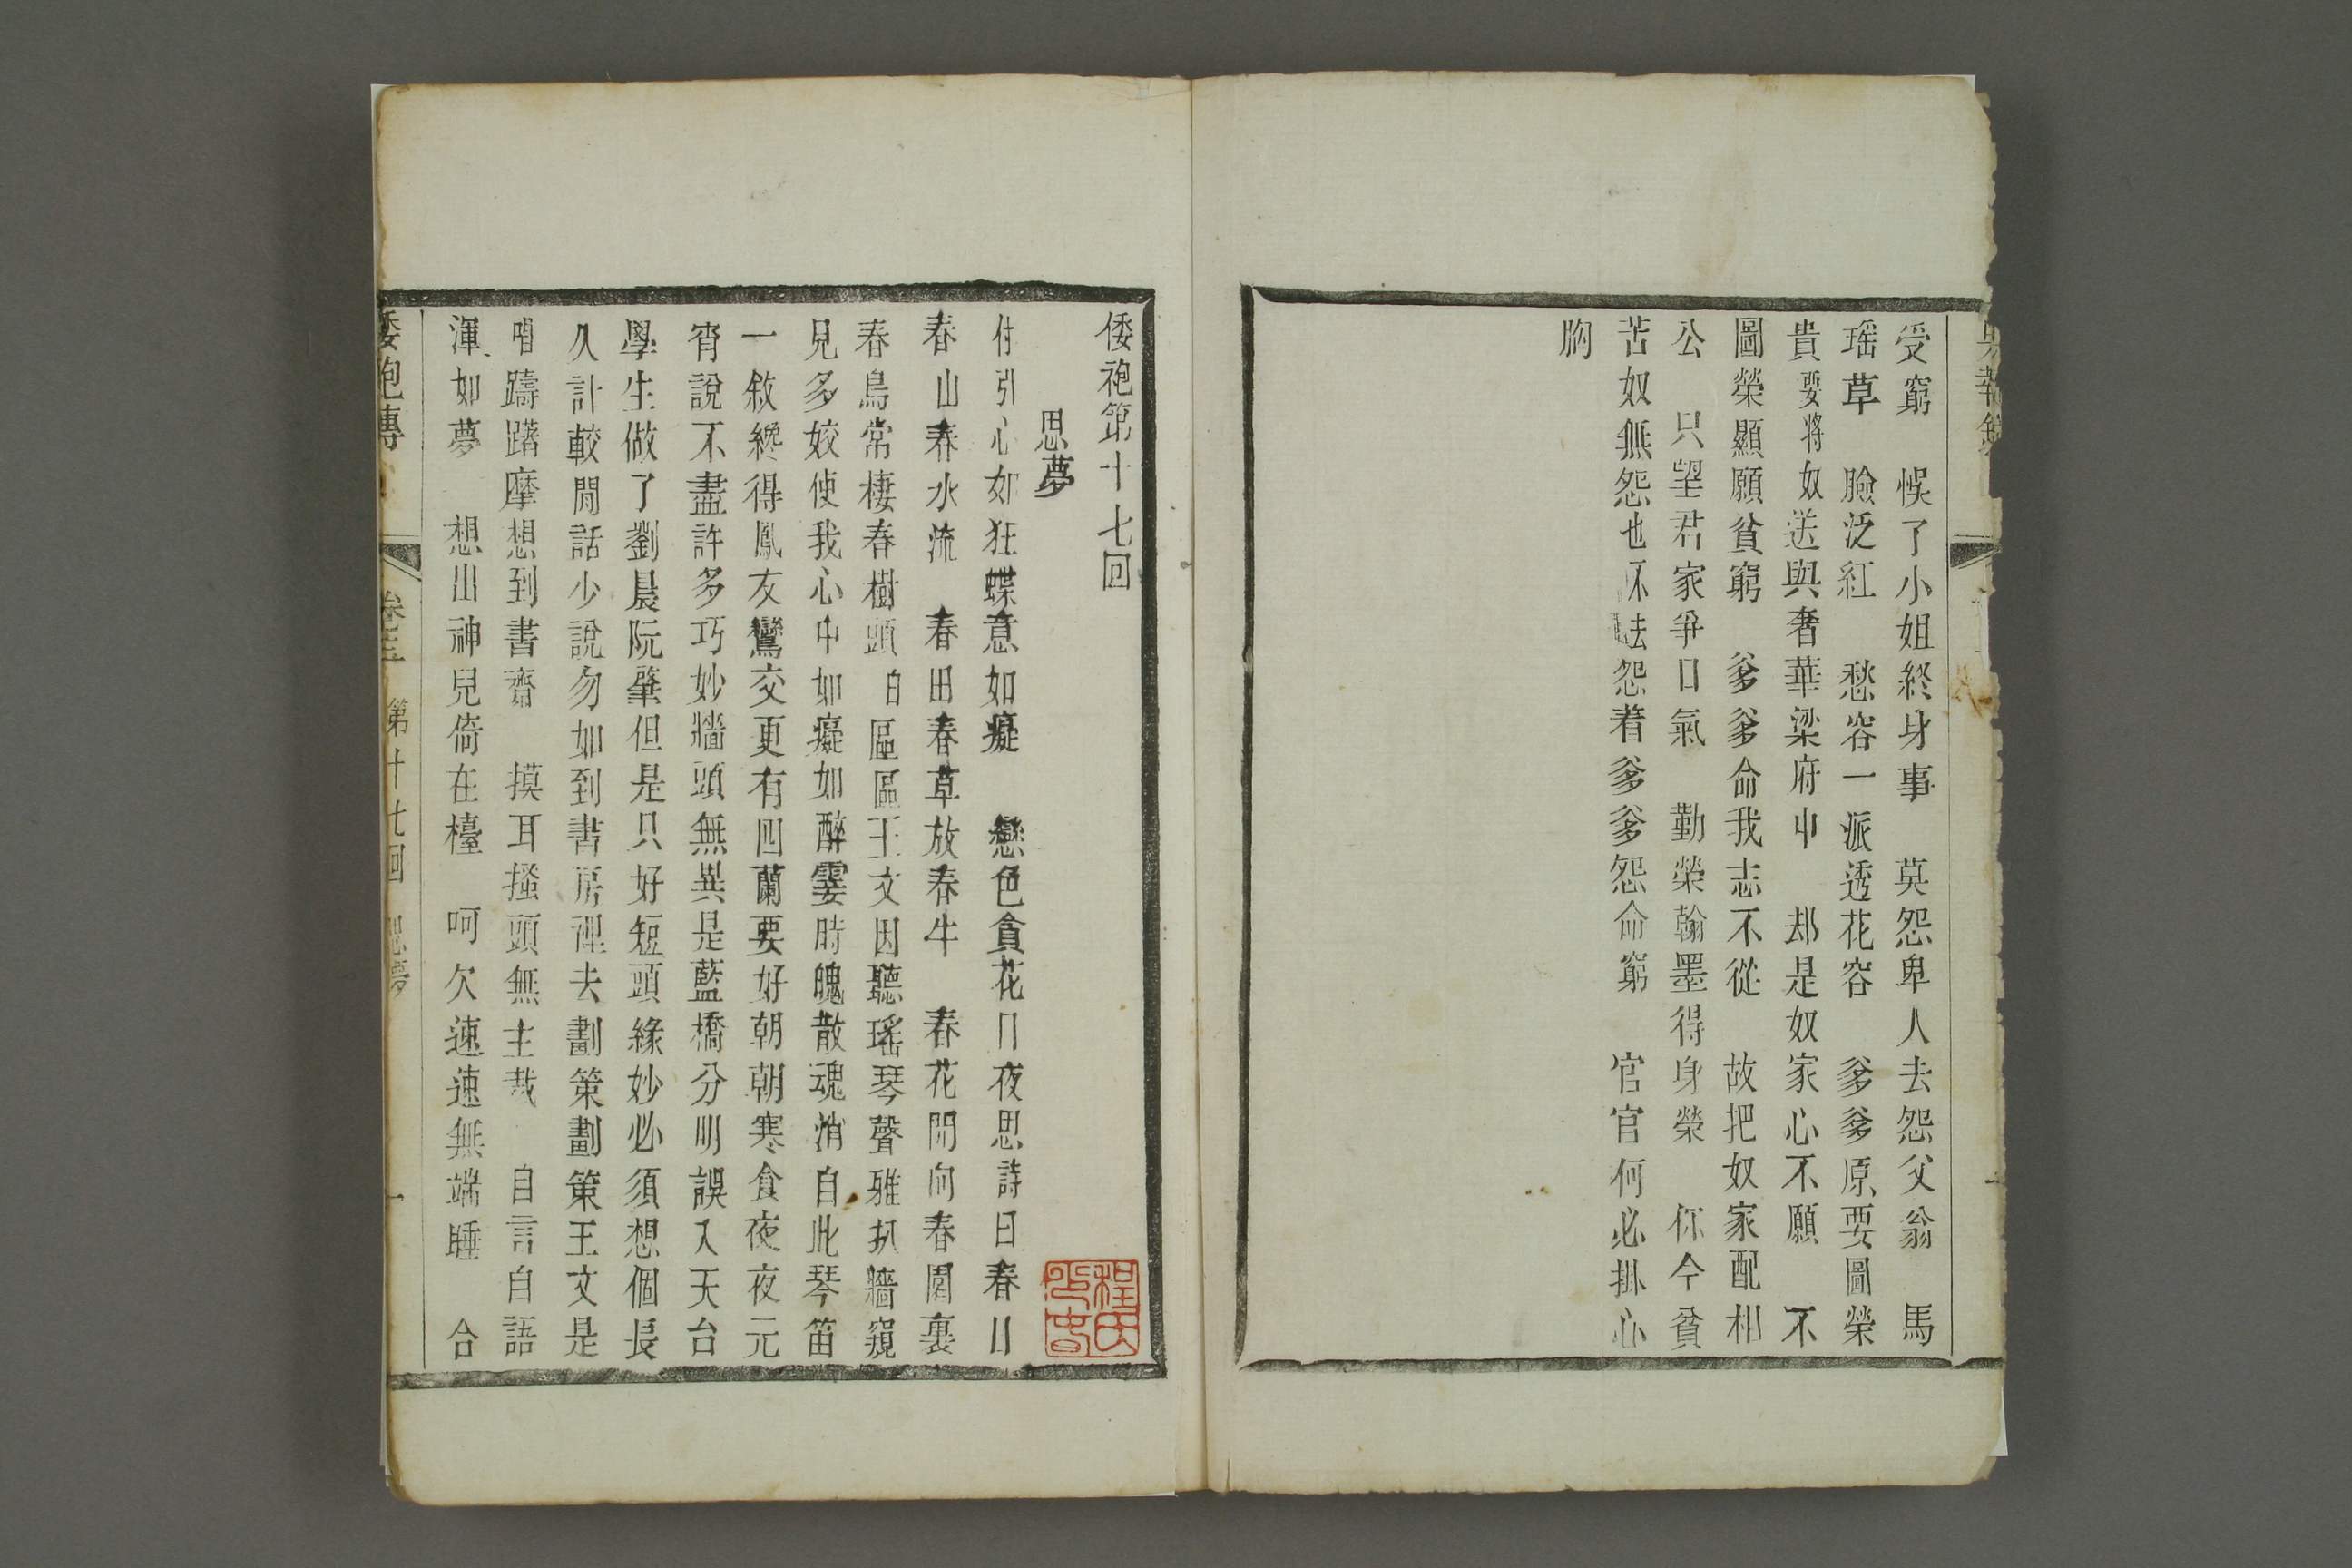 受窮　悞了小姐終身事　莫怨卑人去怨父翁　馬
瑶草　臉泛紅　愁容一派透花容　爹爹原要圖榮
貴要將奴送與奢華梁府中　却是奴家心不願　不
圖榮顯願貧窮　爹爹命我志不從　故把奴家配相
公　只望君家爭口氣　勤榮翰墨得身榮　你今貧
苦奴無怨也不怯怨着爹爹怨命窮　官官何必掛心
胸
倭袍第十七回
思夢
引心如狂蝶意如癡　戀色貪花日夜思詩曰春日
春山春水流　春田春草放春牛　春花開向春園裏
春鳥常棲春樹頭　白區區王文因聽瑤琴聲雅扒牆窺
見多姣使我心中如癡如醉霎時魄散魂消自此琴笛
一敘纔得鳳友鸞交更有四蘭要好朝朝寒食夜夜元
宵說不盡許多巧妙牆頭無異是藍橋分明誤入天台
學生做了劉晨阮肇但是只好短頭緣妙必須想個長
久計較閒話少說勿如到書房裡去劃策劃策王文是
唱躊躇摩想到書齋　摸耳搔頭無主裁　自言自語
渾如夢　想出神兒倚在檯　呵欠連連無端睡　合
倭袍傳　卷三　第十七回　思夢　一
程氏